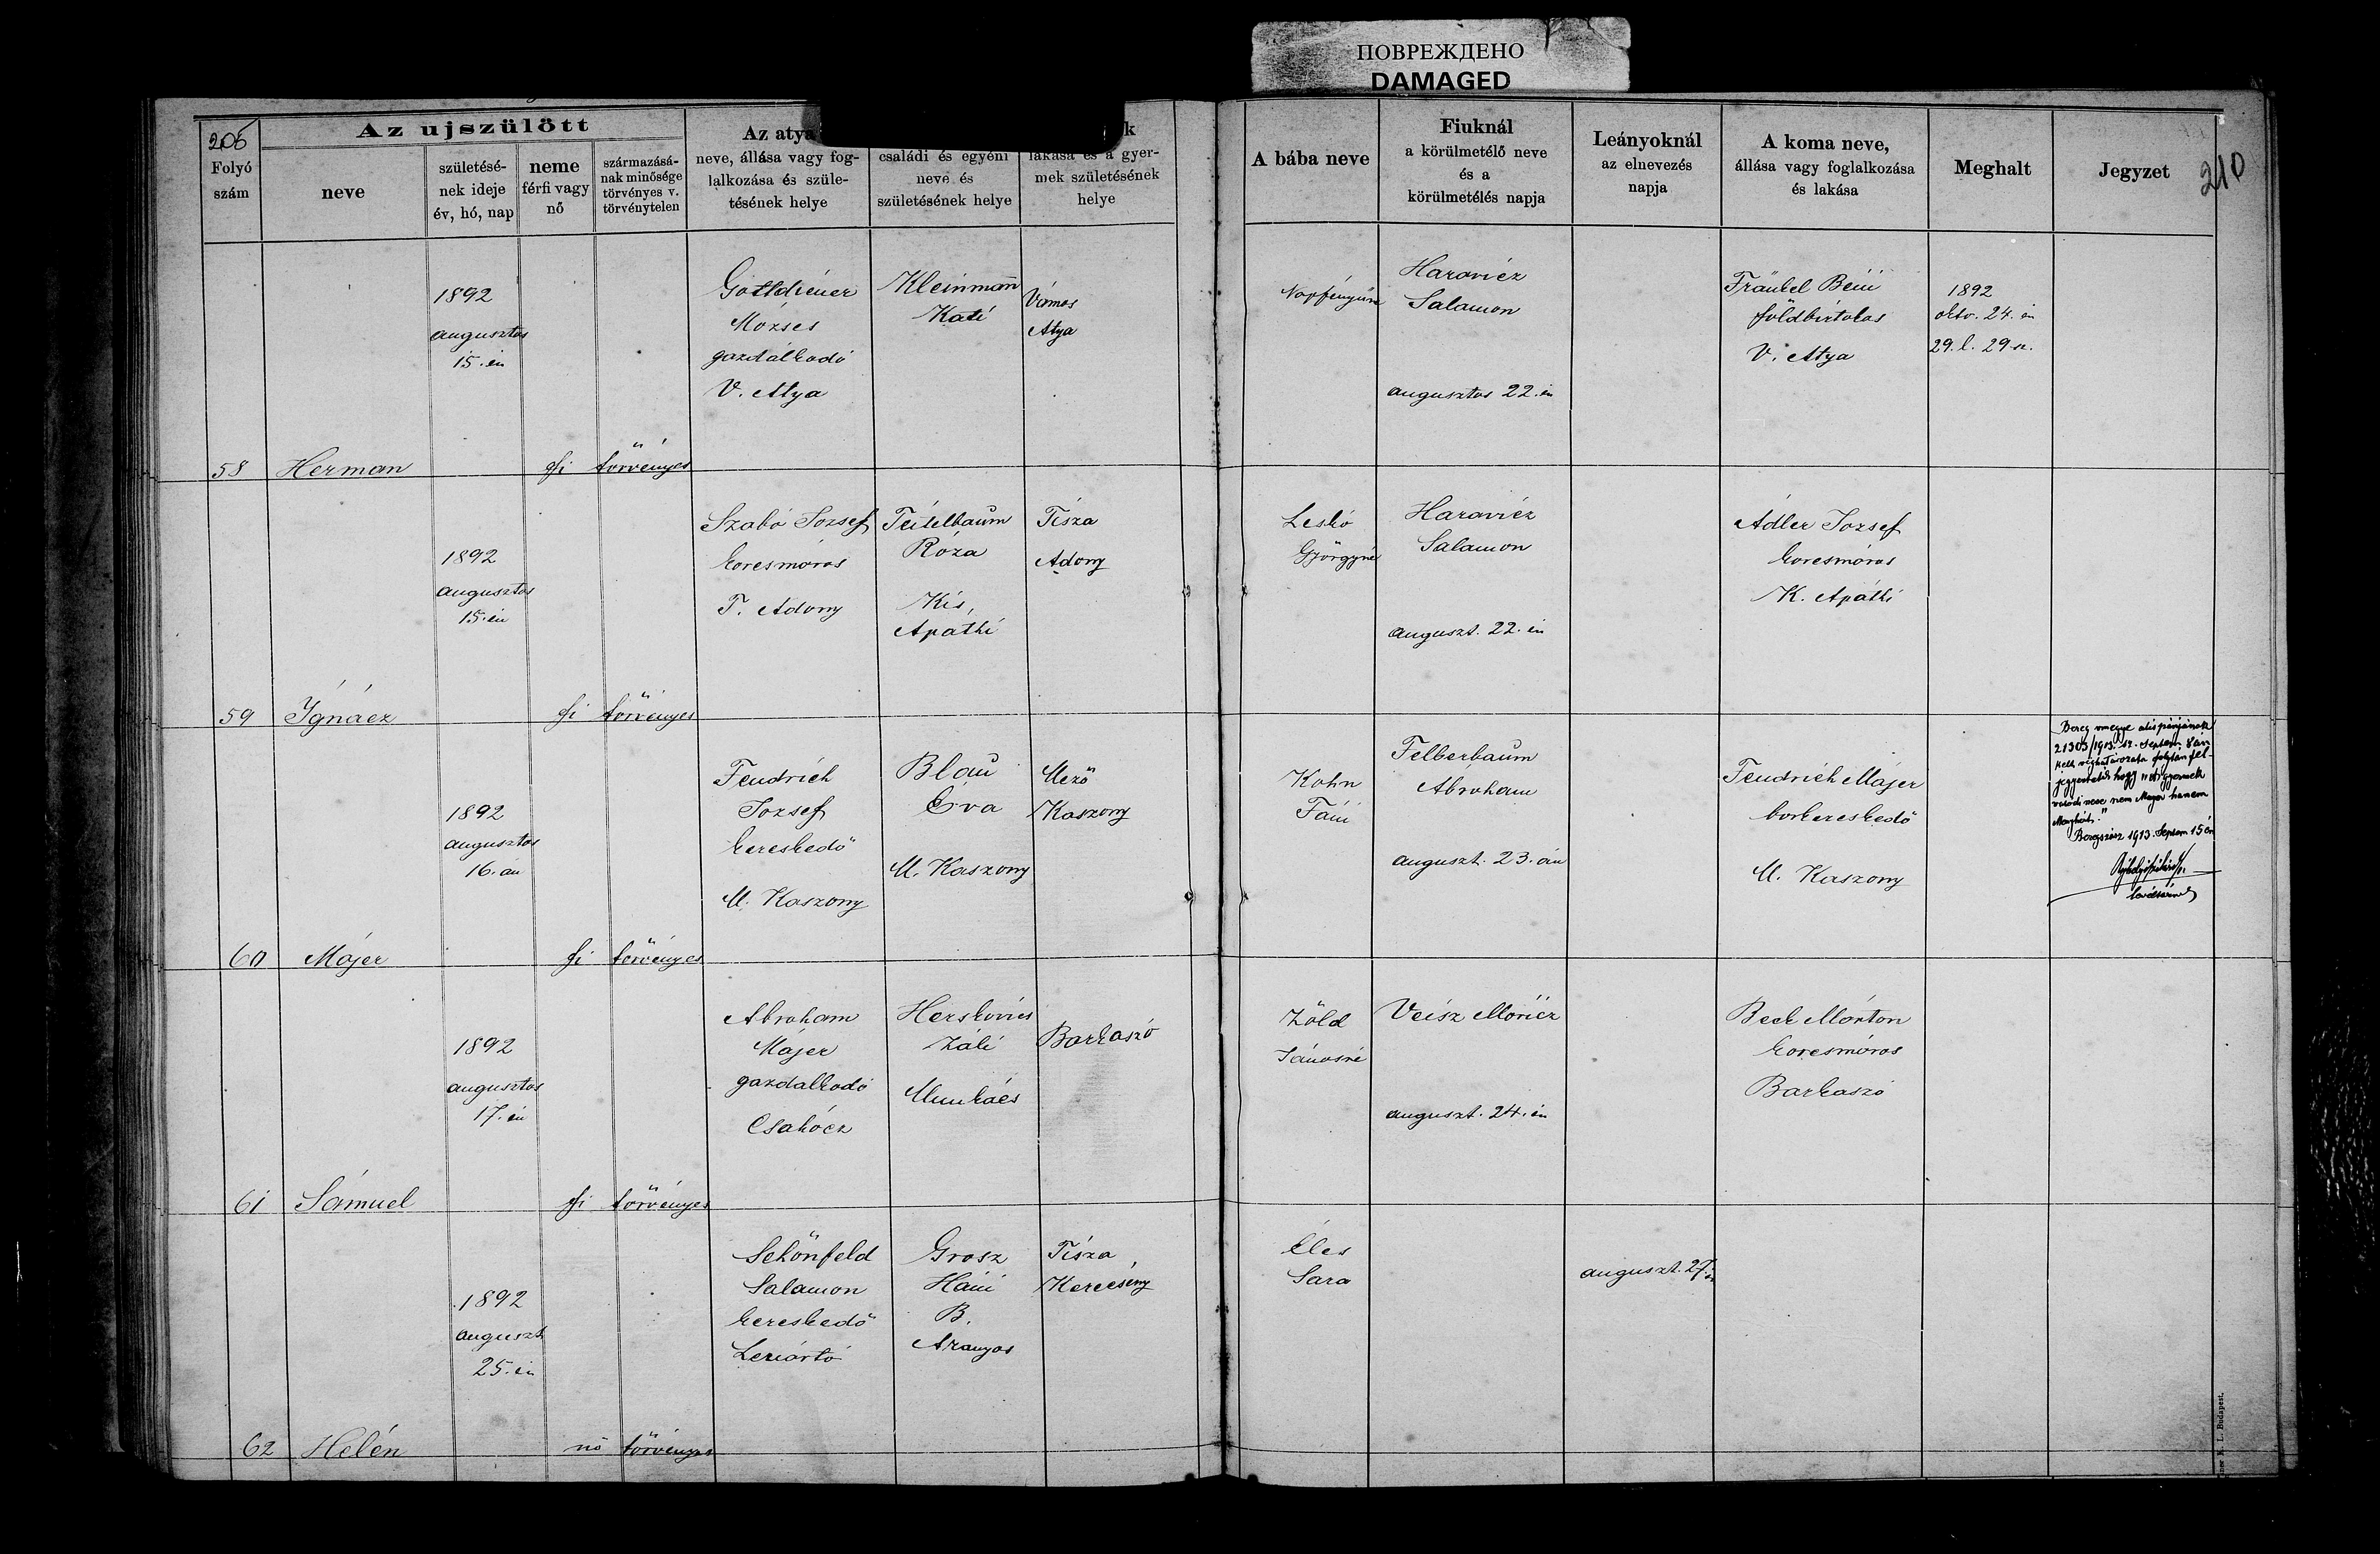 ПОВРЕЖДЕНО
DAMAGED
206
210
Az ujszülött
Folyó szám
neve
születésé-
nek ideje
év, hó, nap
neme
férfi vagy
nő
származásá-
nak minősége
törvényes v.
törvénytelen
Az atya
neve, állása vagy fog-
lalkozása és szüle-
tésének helye
családi és egyéni
neve és
születésének helye
k
lakása és a gyer-
mek születésének
helye
A bába neve
Fiuknál
a körülmetélő neve
és a
körülmetélés napja
Leányoknál
az elnevezés
napja
A koma neve,
állása vagy foglalkozása
és lakása
Meghalt
Jegyzet
58
Herman
1892
augusztus
15.én
fi
törvényes
Gottdiener
Mózses
gazdálkodó
V. Atya
Kleinman
Kati
Vámos
Atya
Haravicz
Salamon
augusztus 22.én
Fränkel Béni
földbirtokos
V. Atya
1892
oktv. 24.én
29.l. 29.sz.
59
Ignácz
1892
augusztus
15.én
fi
törvényes
Szabó József
korcsmáros
T. Adony
Teitelbaum
Róza
Kis,
Apáthi
Tisza
Adony
Leskó
Györgyné
Haravicz
Salamon
auguszt. 22.én
Adler József
korcsmáros
K. Apáthi
60
Májer
1892
augusztus
16.án
fi
törvényes
Fendrich
József
kereskedő
M. Kaszony
Blau
Éva
M. Kaszony
Mező
Kaszony
Kohn
Fáni
Felberbaum
Abraham
auguszt. 23.án
Fendrich Májer
borkereskedő
M. Kaszony
Bereg megye alispánjának
21303/1913. sz. Septem. 8 án
kelt véghatározata folytán fel-
jegyeztetik hogy "a gyermek
valódi neve nem Majer hanem
Beregszász 1913. Septem 15 én
levéltárnok
61
Sámuel
1892
augusztus
17.én
fi
törvényes
Abraham
Májer
gazdalkodó
Csahócz
Herskovics
Záli
Munkács
Barkaszó
Zöld
Jánosné
Veisz Móricz
auguszt. 24.én
Beck Márton
korcsmáros
Barkaszó
62
Helén
1892
auguszt
25.én
nő
törvényes
Schönfeld
Salamon
kereskedő
Grosz
Háni
B.
Aranyos
Tisza
Kerecsény
Éles
Sara
auguszt. 27.én
L. Budapest.